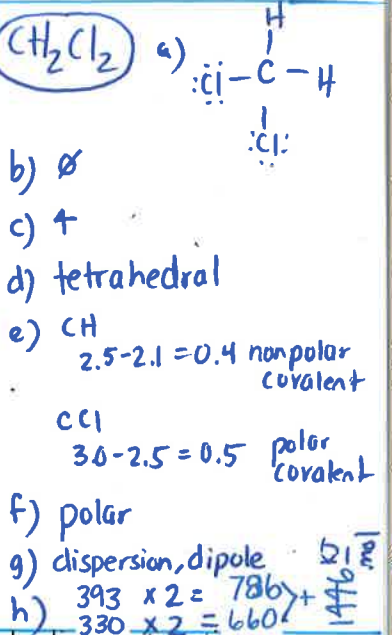 CH₂Cl₂
a)
H
:Cl-C-H
:Cl:
b) ∅
c) 4
d) tetrahedral
e) CH
2.5-2.1=0.4 nonpolar
covalent
CCl
3.0-2.5=0.5 polar
covalent
f) polar
g) dispersion, dipole
h) 393 x 2 = 786
330 x 2 = 660
+
1446 kJ/mol